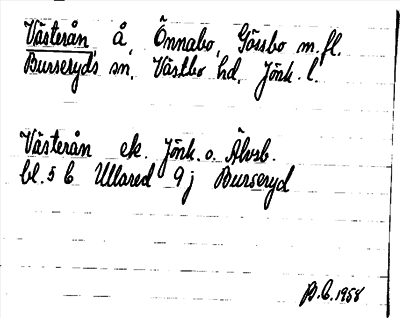 Västerån, å, Önnabo, Gössbo m.fl.
Burseryds sn, Västbo hd, Jönk. l.
Västerån ek. Jönk. o. Älvsb.
bl. 5 C Ullared 9 j Burseryd
B.C. 1958